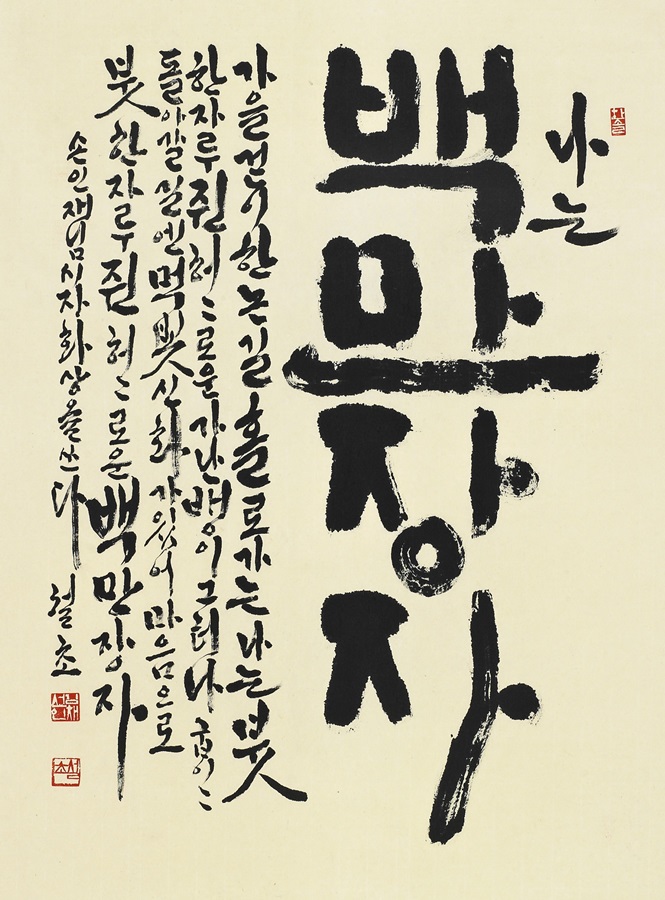 나는
백만장자
가을 걷이 한 논길 홀로 가는 나는 붓
한자루 쥔 허〻로운 가난뱅이 그러나 굽이〻
돌아갈 길엔 먹빛 산화가 있어 마음으로
붓 한자루 쥔 허〻로운 백만장자
손인재님 시 자화상을 쓰다 설초